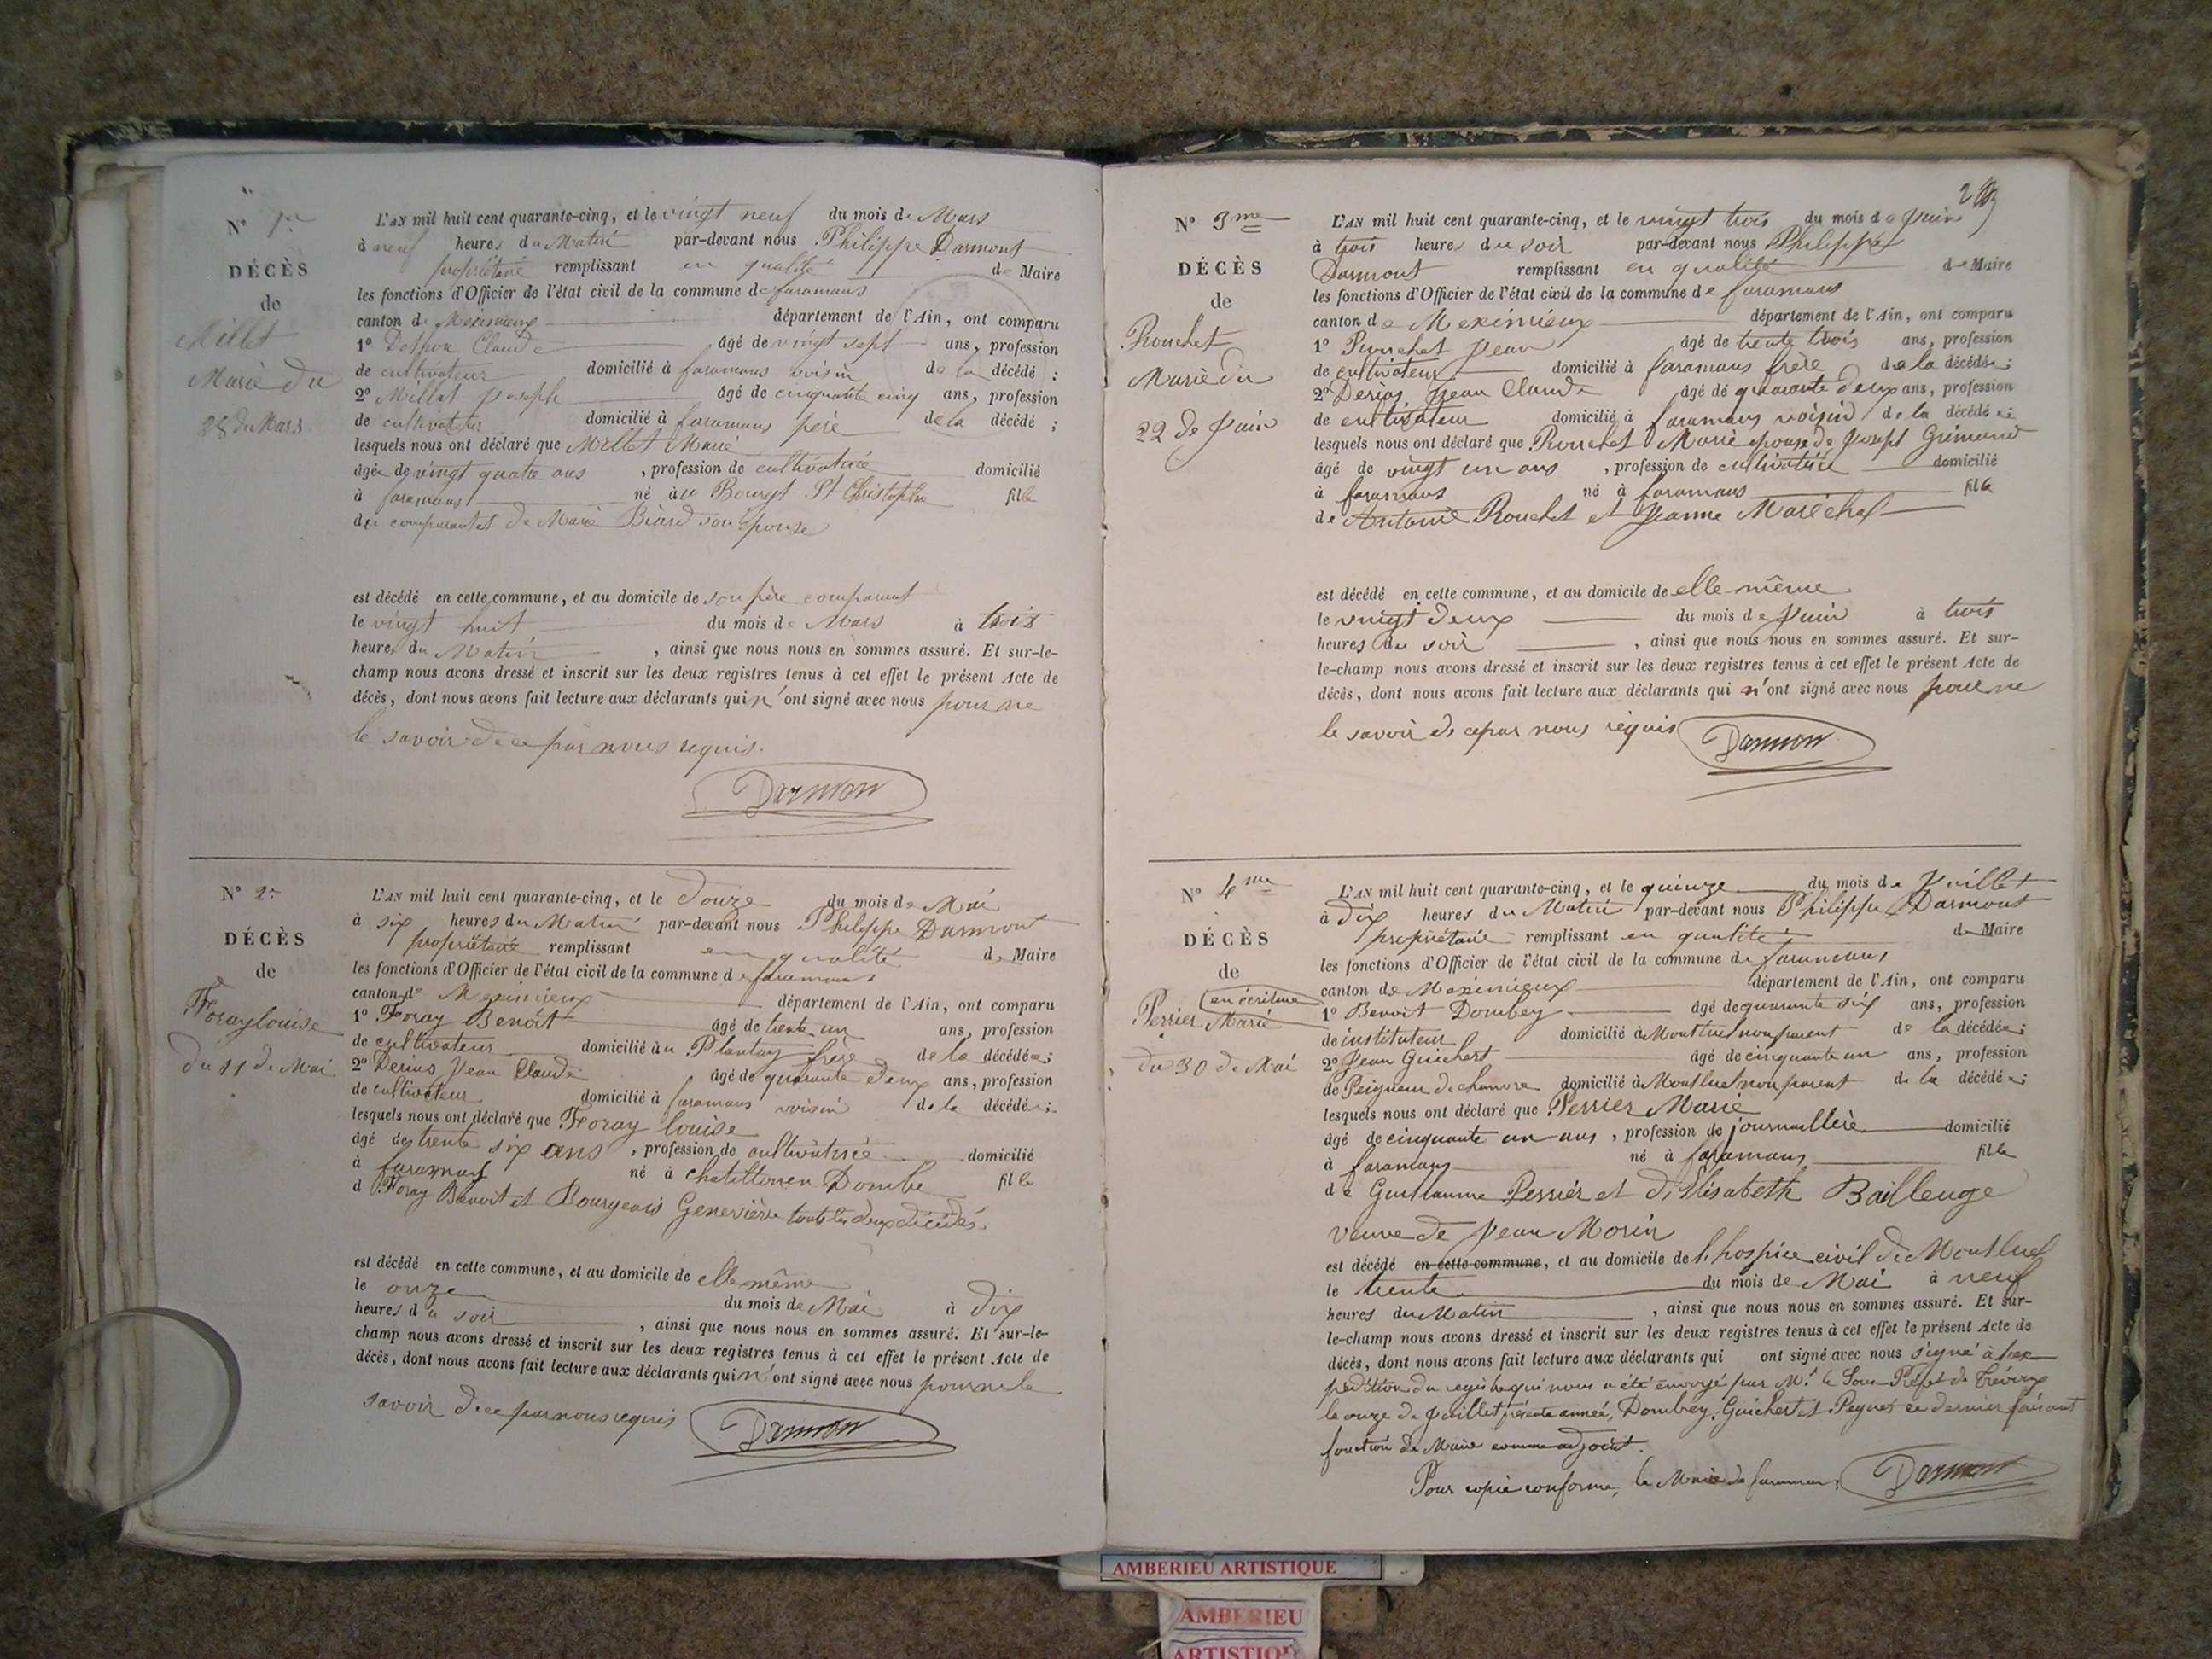 N° 1er
DÉCÈS
de
Millet
Marie du
28 de Mars
L'AN mil huit cent quarante-cinq, et le vingt neuf du mois de Mars
à neuf heures du Matin par-devant nous Philippe Darmont
propriétaire remplissant en qualité de Maire
les fonctions d'Officier de l'état civil de la commune de faramans
canton de Meximieux département de l'Ain, ont comparu
1° Claude âgé de vingt sept ans, profession
de cultivateur domicilié à faramans voisin de la décédé ;
2° Millet Joseph âgé de cinquante cinq ans, profession
de cultivateur domicilié à faramans père de la décédé ;
lesquels nous ont déclaré que Millet Marie
âgée de vingt quatre ans , profession de cultivatrice domicilié
à faramans né au Bourgt St Christophe fille
du comparant et de Marie Biard son épouse
est décédé en cette commune, et au domicile de son père comparant
le vingt huit du mois de Mars à trois
heures du Matin , ainsi que nous nous en sommes assuré. Et sur-le-
champ nous avons dressé et inscrit sur les deux registres tenus à cet effet le présent Acte de
décès, dont nous avons fait lecture aux déclarants qui n'ont signé avec nous pour ne
le savoir de ce par nous requis.
Darmon
N° 2e
DÉCÈS
de
Foray louise
du 11 de Mai
L'AN mil huit cent quarante-cinq, et le douze du mois de Mai
à six heures du Matin par-devant nous Philippe Darmont
propriétaire remplissant en qualité de Maire
les fonctions d'Officier de l'état civil de la commune de faramans
canton de Meximieux département de l'Ain, ont comparu
1° Foray Benoît âgé de trente un ans, profession
de cultivateur domicilié au Plantay frère de la décédée ;
2° Derias Jean Claude âgé de quarante deux ans, profession
de cultivateur domicilié à faramans voisin de la décédée ;
lesquels nous ont déclaré que Foray louise
âgé de trente six ans , profession de cultivatrice domicilié
à faramans né à chatillon en Dombe fille
d Foray Benoit et Bourgeois Geneviève touts les deux décédés.
est décédé en cette commune, et au domicile de elle même
le onze du mois de Mai à dix
heures du soir , ainsi que nous nous en sommes assuré. Et sur-le-
champ nous avons dressé et inscrit sur les deux registres tenus à cet effet le présent Acte de
décès, dont nous avons fait lecture aux déclarants qui n'ont signé avec nous pour ne le
savoir de ce par nous requis
Darmon
N° 3me
DÉCÈS
de
Rouchet
Marie du
22 de Juin
L'AN mil huit cent quarante-cinq, et le vingt trois du mois de Juin
à trois heures du soir par-devant nous Philippe
Darmont remplissant en qualité de Maire
les fonctions d'Officier de l'état civil de la commune de faramans
canton de Meximieux département de l'Ain, ont comparu
1° Rouchet Jean âgé de trente trois ans, profession
de cultivateur domicilié à faramans frère de la décédée ;
2° Derias Jean Claude âgé de quarante deux ans, profession
de cultivateur domicilié à faramans voisin de la décédée ;
lesquels nous ont déclaré que Rouchet Marie epouse de Joseph Grimand
âgé de vingt un ans , profession de cultivatrice domicilié
à faramans né à faramans fille
de Antoine Rouchet et Jeanne Maréchal
est décédé en cette commune, et au domicile de elle même
le vingt deux du mois de Juin à trois
heures du soir , ainsi que nous nous en sommes assuré. Et sur-
le-champ nous avons dressé et inscrit sur les deux registres tenus à cet effet le présent Acte de
décès, dont nous avons fait lecture aux déclarants qui n'ont signé avec nous pour ne
le savoir de ce par nous requis
Darmon
N° 4me
DÉCÈS
de
(en écriture
Perrier Marie
du 30 de Mai
L'AN mil huit cent quarante-cinq, et le quinze du mois de Juillet
à dix heures du Matin par-devant nous Philippe Darmont
propriétaire remplissant en qualité de Maire
les fonctions d'Officier de l'état civil de la commune de faramans
canton de Meximieux département de l'Ain, ont comparu
1° Benoit Dombey âgé de quarante six ans, profession
de instituteur domicilié à Montluel non parent de la décédée ;
2° Jean Guichert âgé de cinquante un ans, profession
de Peigneur de chanvre domicilié à Montluel non parent de la décédée ;
lesquels nous ont déclaré que Perrier Marie
âgé de cinquante un ans , profession de journallière domicilié
à faramans né à faramans fille
de Guillaume Perrier et d'Elisabeth Baillenge
veuve de Jean Morin
est décédé en cette commune, et au domicile de l'hospice civil de Montluel
le trente du mois de Mai à neuf
heures du Matin , ainsi que nous nous en sommes assuré. Et sur-
le-champ nous avons dressé et inscrit sur les deux registres tenus à cet effet le présent Acte de
décès, dont nous avons fait lecture aux déclarants qui ont signé avec nous signé à l'ex
pédition du registre qui nous a été envoyé par Mr le Sous-Préfet de Trévoux
le onze de Juillet présente année, Dombey, Guichert et Peynet ce dernier faisant
fonction de Maire comme adjoint.
Pour copie conforme, le Maire de faramans,
Darmon
AMBERIEU ARTISTIQUE
AMBERIEU
ARTISTIQUE